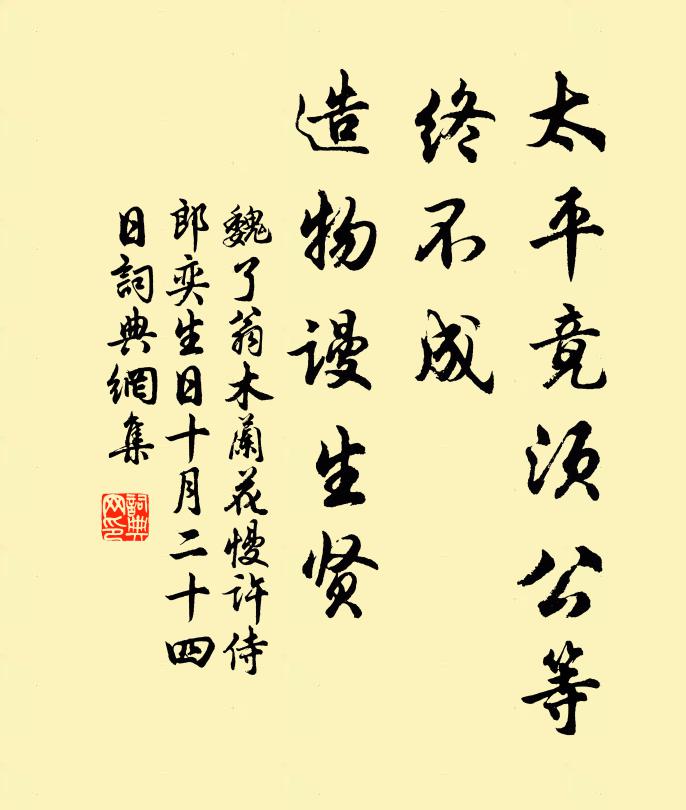 太平竟须公等
终不成
造物谩生贤
魏了翁木蘭花慢许侍
郎奕生日十月二十四
日詞典網集
詞典
网印